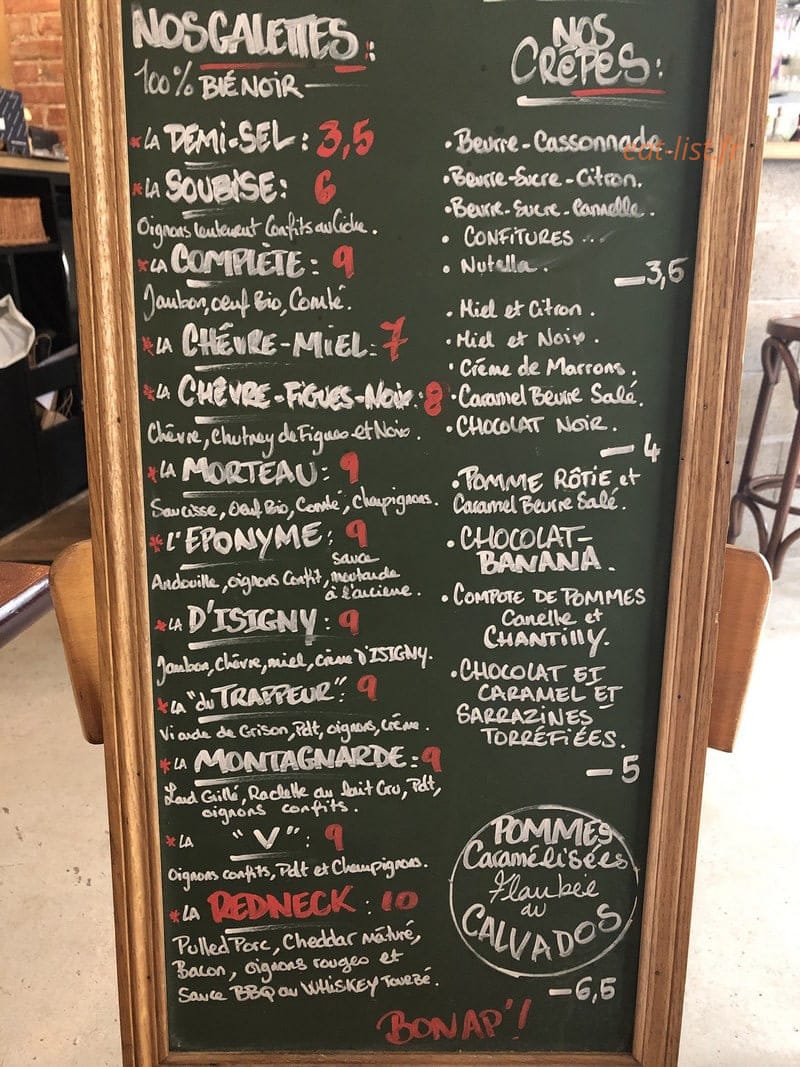 NOS GALETTES:
100% BLÉ NOIR
*LA DEMI-SEL: 3,5
*LA SOUBISE: 6
Oignons lentement Confits au Cidre.
*LA COMPLÈTE: 9
Jambon, oeuf Bio, Comté.
*LA CHÈVRE-MIEL: 7
*LA CHÈVRE-FIGUES-Noix: 8
Chèvre, Chutney de Figues et Noix.
*LA MORTEAU: 9
Saucisse, Oeuf Bio, Comté, Champignons.
*L'EPONYME: 9
Andouille, oignons Confit, sauce
moutarde
à l'ancienne.
*LA D'ISIGNY: 9
Jambon, Chèvre, miel, crème D'ISIGNY.
*LA "du TRAPPEUR": 9
Viande de Grison, Pdt, oignons, Crème.
*LA MONTAGNARDE: 9
Lard Grillé, Raclette au lait Cru, Pdt,
oignons confits.
*LA "V": 9
Oignons confits, Pdt et Champignons.
*LA REDNECK: 10
Pulled Porc, Cheddar Mâturé,
Bacon, oignons rouges et
Sauce BBQ au WHISKEY TOURBÉ.
NOS
CRÊPES:
• Beurre-Cassonnade
eat-list.fr
• Beurre-Sucre-Citron.
• Beurre-Sucre-Cannelle.
• CONFITURES ...
• Nutella.
—3,5
• Miel et Citron.
• Miel et Noix.
• Crème de Marrons.
• Caramel Beurre Salé.
• CHOCOLAT NOIR.
— 4
• POMME RÔTIE et
Caramel Beurre Salé.
• CHOCOLAT-
BANANA.
• COMPOTE DE POMMES
Canelle et
CHANTILLY.
• CHOCOLAT ET
CARAMEL ET
SARRAZINES
TORRÉFIÉES.
— 5
POMMES
Caramélisées
Flambée
au
CALVADOS
—6,5
BON AP'!